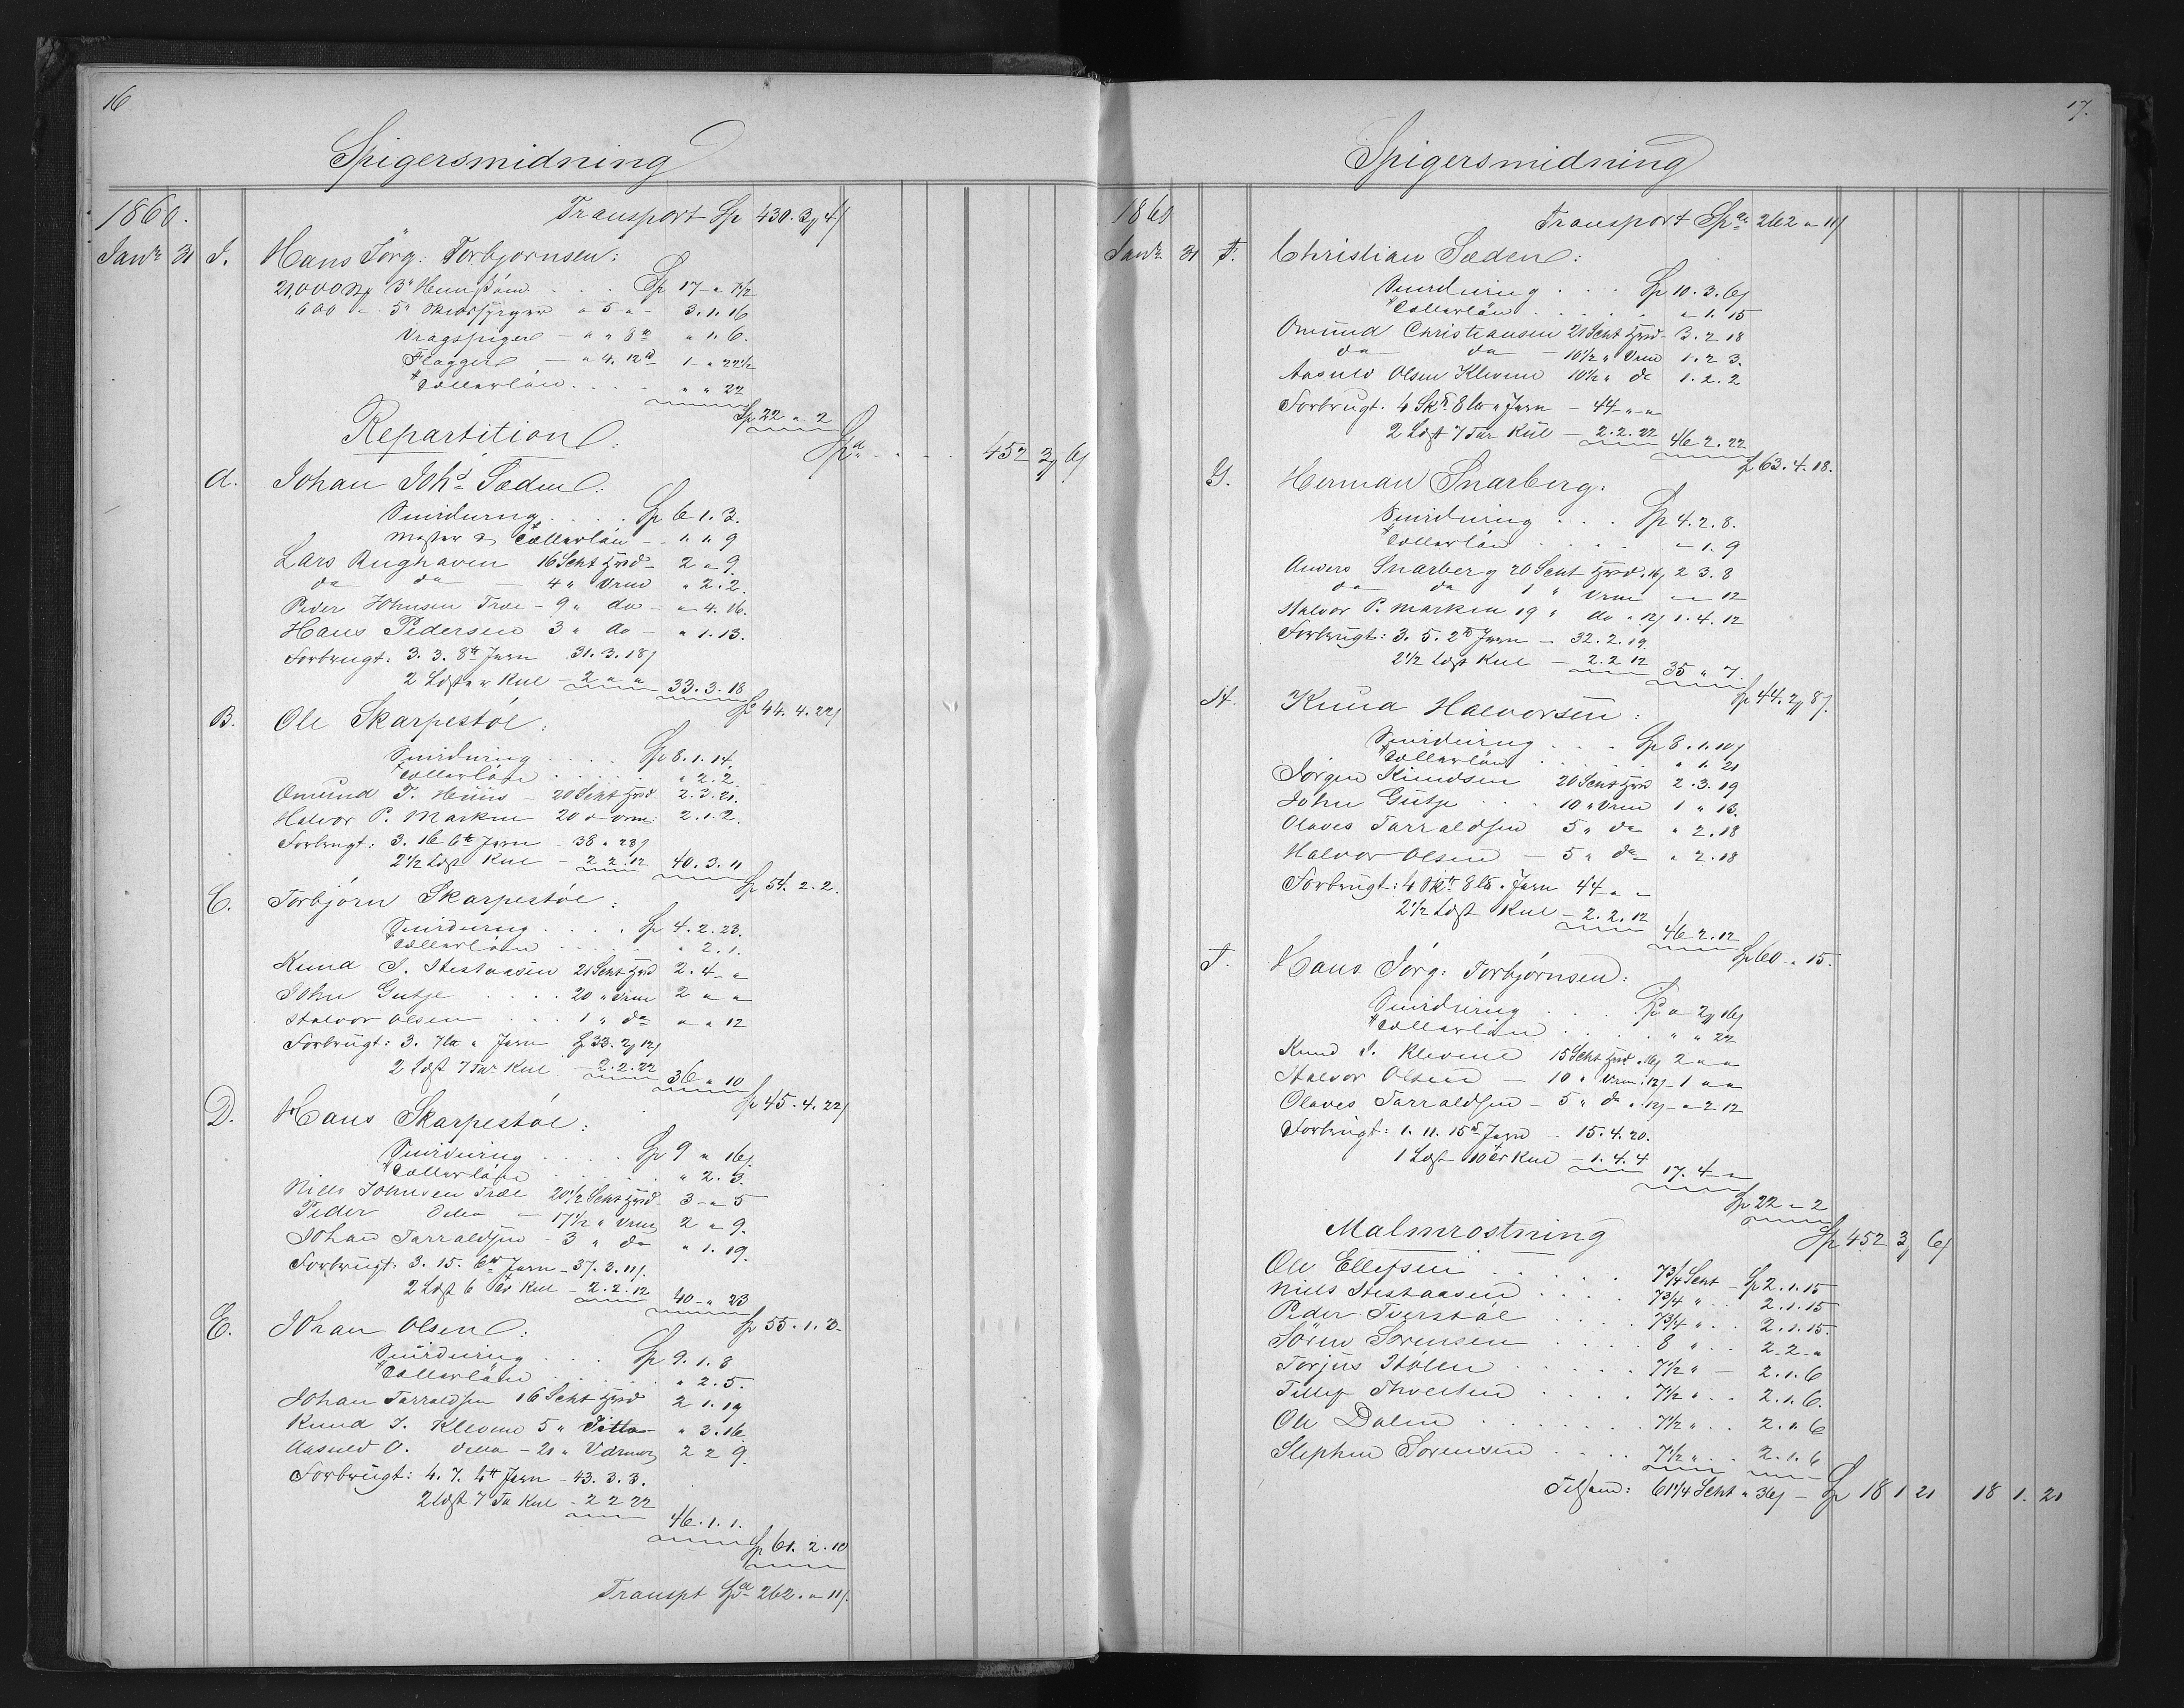 16
Spigersmidning
1860. Transport Sp 430. 3 4
Janr 31 I. Hans Jörg: Torbjørnsen:
21,000 3" Sp 17 " 7½
600 " 5" " 5 - " 3. 1. 16
Vragspiger - " " 8 " 1. 6.
Flagger - " 4. 12 1 - " 22½
" " 22
Sp 22 " 2
Repartition: Sp 452 3 6
A. Johan Johs Sæden:
Smidning . . . . Sp 6 1. 3.
Mester " 1. 1 9
Lars Rughaven 16 Scht 2 " 9.
do do - 4 " Vrm " 2. 2.
Peder Johnsen Træe - 9 " do - " 4. 16.
Hans Pedersen 3 " do - " 1. 13.
Forbrugt: 3. 3. 8 Jern 31. 3. 18
2 Læster Kul - 2 " " 33. 3. 18
Sp 44. 4. 22
B. Ole Skarpestøl:
Smidning . . . . Sp 8. 1. 14.
" 2. 2
Omund T. Huus - 20 Scht 2. 3. 21.
Halvor P. Marken 20 " Vrm: 2. 1. 2.
Forbrugt: 3. 16 6 Jern 38 " 23
2½ Læst Kul - 2 2. 12 40. 3. 11
Sp 54. 2. 2.
C. Torbjørn Skarpestøl:
Smidning . . . . Sp 4. 2. 23.
" 2. 1.
Knud J. Stestaasen 21 Scht 2. 4 - "
John Gutje . . . . 20 " Vrm 2 " "
Halvor Olsen . . . 1 " do " " 12
Forbrugt: 3. 7 " Jern Sp 33. 2 12
2 Læst 7 Tdr Kul - 2. 2. 22 36 " 10
Sp 45. 4. 22
D. Hans Skarpestøl:
Smidning . . . . Sp 9 " 16
" 2. 3.
Niels Johnsen Træe 20½ Scht 3 - " 5
Peder Ditto - 17½ " Vrm 2 " 9.
Johan Tarraldsen - 3 " do " 1. 19.
Forbrugt: 3. 15. 6 Jern - 37. 3. 11
2 Læst 6 Kul - 2. 2. 12 40 - " 23
Sp 55. 1. 3.
E. Johan Olsen:
Smidning . . . Sp 9. 1. 8
" 2. 5.
Johan Tarraldsen 16 Scht 2 1. 19
Knud J. Klevene 5 " Ditto - " 3. 16
Aasuld O. Ditto - 21 " Varmer 2 2 9.
Forbrugt: 4. 7. 4 Jern - 43. 3. 3.
2 Læst 7 Tr Kul - 2 2 22
46. 1. 1.
Sp 61. 2. 10
Transpt Sp 262. " 11
17.
Spigersmidning
1860 Transport Sp 262 " 11
Janr. 31 F. Christian Sæden:
Smidning . . . Sp 10. 3. 6
" 1. 15
Omund Christiansen 21 Scht 3. 2 18
do do - 10½ " Vrm 1. 2 3.
Aasuld Olsen Klevene 10½ " do 1. 2. 2
Forbrugt. 4 8 " Jern - 44 - " - "
2 Læst 7 Tdr Kul - 2. 2. 22 46 2. 22
Sp 63. 4. 18.
G. Herman Snarberg.
Smidning . . . Sp 4. 2. 8.
" 1. 9
Anders Snarberg 20 Scht 16 2 3. 8
do do 1 " Vrm " " 12
Halvor P. Marken 19 " do " 12 1. 4. 12
Forbrugt: 3. 5. 2 Jern - 32. 2. 19.
2½ Læst Kul - 2. 2 12 35 " 7.
Sp 44. 2 8
H. Knud Halvorsen:
Smidning . . . Sp 8. 1. 10
" 1. 21
Jørgen Knudsen 20 Scht 2. 3. 19
John Gutje . . . 10 " Vrm 1 " 13.
Olaves Tarraldsen 5 " do " 2. 18
Halvor Olsen - 5 " do " 2. 18
Forbrugt: 4 8 " Jern 44 - " -
2½ Læst Kul - 2. 2. 12
46 2. 12
Sp 60 " 15.
I. Hans Jörg: Torbjørnsen:
Smidning . . . . Sp " 2 16
" " 22
Knud J. Klevene 15 Scht 16 2 " "
Halvor Olsen - 10 " Vrm: 12 - 1 " "
Olaves Tarraldsen - 5 " do " 12 - " 2 12
Forbrugt: 1. 11. 15 Jern - 15. 4. 20.
1 Læst 10 Kul - 1. 4. 4
17. 4 - "
Sp 22 " 2
Malmrostning Sp 452 3 6
Ole Ellefsen . . . . . 7¾ Scht - Sp 2. 1. 15
Niels Stestaasen . . . . 7¾ " . . 2. 1. 15
Peder Tverstøl . . . . 7¾ " . . 2. 1. 15.
Søren Sørensen . . . . 8 " . . 2 - 2 - "
Torjus Stölen . . . . . 7½ " - 2. 1. 6
Tellef Thveiten . . . . 7½ " . . 2. 1. 6.
Ole Dalen . . . . . . 7½ " . . 2. 1. 6
Stephen Sørensen . . . . 7½ " . . 2. 1. 6
Tilsam: 61¼ Scht " 36 - Sp 18 1 21 18 1. 21